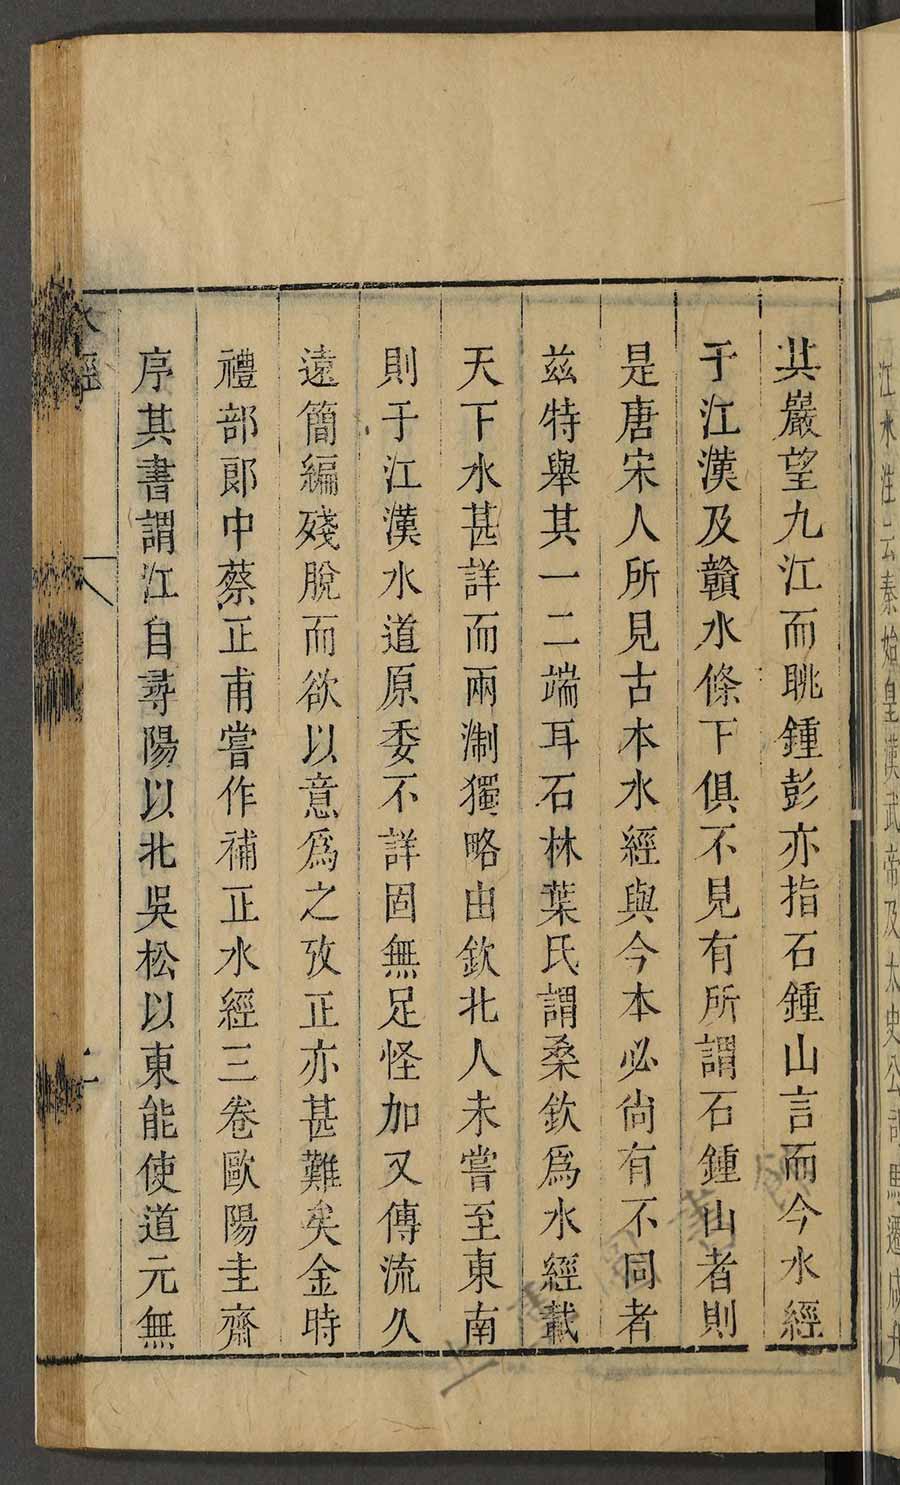 其巖望九江而眺鍾彭亦指石鍾山言而今水經
于江漢及贛水條下俱不見有所謂石鍾山者則
是唐宋人所見古本水經與今本必尙有不同者
茲特舉其一二端耳石林葉氏謂桑欽爲水經載
天下水甚詳而兩淛獨略由欽北人未嘗至東南
則于江漢水道原委不詳固無足怪加又傳流久
遠簡編殘脫而欲以意爲之攷正亦甚難矣金時
禮部郎中蔡正甫嘗作補正水經三卷歐陽圭齋
序其書謂江自尋陽以北吳松以東能使道元無
水經
江水注云秦始皇漢武帝及太史公司馬遷咸升